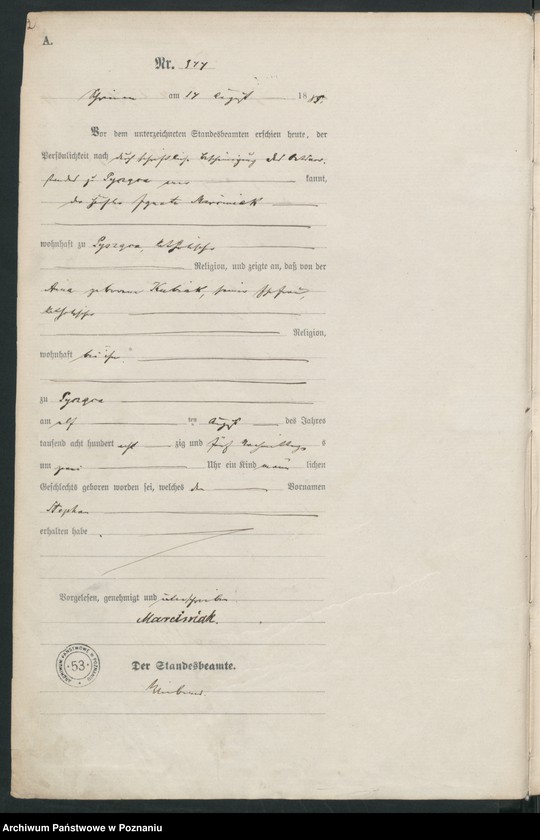 A.
Nr. 177
Schrimm am 17 August 1885.
Vor dem unterzeichneten Standesbeamten erschien heute, der
Persönlichkeit nach durch schriftliche Bescheinigung des
zu kannt,
der Ignatz Marciniak
wohnhaft zu katholischer
Religion, und zeigte an, daß von der
Anna geborene Kubiak, seiner Ehefrau,
katholischer
Religion,
wohnhaft bei ihm
zu
am elf ten August des Jahres
tausend acht hundert acht zig und fünf Nachmittag s
um zwei Uhr ein Kind männ lichen
Geschlechts geboren worden sei, welches den Vornamen
Stephan
erhalten habe.
Vorgelesen, genehmigt und unterschrieben
Marciniak.
Der Standesbeamte.
ARCHIWUM PAŃSTWOWE W POZNANIU
53
Archiwum Państwowe w Poznaniu